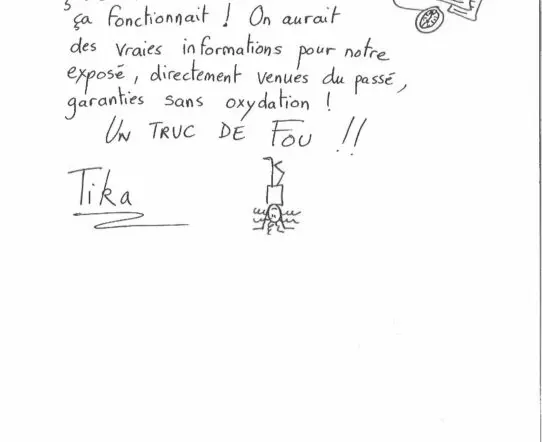 ça fonctionnait ! On aurait
des vraies informations pour notre
exposé, directement venues du passé,
garanties sans oxydation !
UN TRUC DE FOU !!
Tika